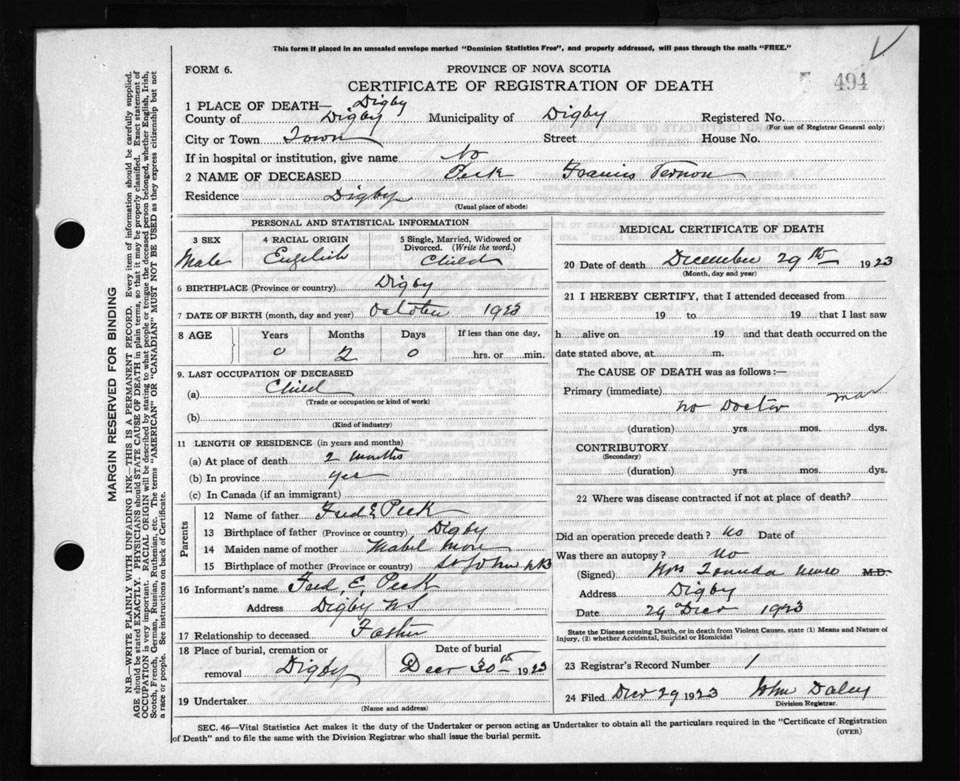 This form if placed in an unsealed envelope marked "Dominion Statistics Free", and properly addressed, will pass through the mails "FREE."
FORM 6.
PROVINCE OF NOVA SCOTIA
494
CERTIFICATE OF REGISTRATION OF DEATH
1 PLACE OF DEATH— Digby
County of Digby Municipality of Digby Registered No.
(For use of Registrar General only)
City or Town Town Street House No.
If in hospital or institution, give name No
2 NAME OF DECEASED Peck Francis Vernon
Residence Digby
(Usual place of abode)
PERSONAL AND STATISTICAL INFORMATION
3 SEX 4 RACIAL ORIGIN 5 Single, Married, Widowed or Divorced. (Write the word.)
Male English Child
6 BIRTHPLACE (Province or country) Digby
7 DATE OF BIRTH (month, day and year) October 1923
8 AGE Years Months Days If less than one day,
0 2 0 hrs. or min.
9. LAST OCCUPATION OF DECEASED
(a) Child
(Trade or occupation or kind of work)
(b)
(Kind of industry)
11 LENGTH OF RESIDENCE (in years and months)
(a) At place of death 2 months
(b) In province yes
(c) In Canada (if an immigrant)
Parents
12 Name of father Fred E Peck
13 Birthplace of father (Province or country) Digby
14 Maiden name of mother Mabel
15 Birthplace of mother (Province or country) St John NB
16 Informant's name Fred. E. Peck
Address Digby NS
17 Relationship to deceased Father
18 Place of burial, cremation or removal Digby
Date of burial
Decr 30th 1923
19 Undertaker
(Name and address)
MEDICAL CERTIFICATE OF DEATH
20 Date of death December 29th 1923
(Month, day and year)
21 I HEREBY CERTIFY, that I attended deceased from
19 to 19 that I last saw
h alive on 19 and that death occurred on the
date stated above, at m.
The CAUSE OF DEATH was as follows:—
Primary (immediate)
no Doctor
(duration) yrs mos. dys.
CONTRIBUTORY
(Secondary)
(duration) yrs. mos. dys.
22 Where was disease contracted if not at place of death?
Did an operation precede death? No Date of
Was there an autopsy? No
(Signed) Mrs M.D.
Address Digby
Date 29 Decr 1923
State the Disease causing Death, or in death from Violent Causes, state (1) Means and Nature of
Injury, (2) whether Accidental, Suicidal or Homicidal
23 Registrar's Record Number 1
24 Filed Decr 29 1923 John Daley
Division Registrar.
SEC. 46—Vital Statistics Act makes it the duty of the Undertaker or person acting as Undertaker to obtain all the particulars required in the "Certificate of Registration
of Death" and to file the same with the Division Registrar who shall issue the burial permit.
(OVER)
MARGIN RESERVED FOR BINDING
N.B.—WRITE PLAINLY WITH UNFADING INK—THIS IS A PERMANENT RECORD. Every item of information should be carefully supplied.
AGE should be stated EXACTLY. PHYSICIANS should STATE CAUSE OF DEATH in plain terms, so that it may be properly classified. Exact statement of
OCCUPATION is very important. RACIAL ORIGIN will be described by stating to what people or tongue the deceased person belonged, whether English, Irish,
Scotch, French, German, Russian, Ruthenian, etc. The terms "AMERICAN" or "CANADIAN" MUST NOT BE USED as they express citizenship but not
a race or people. See instructions on back of Certificate.